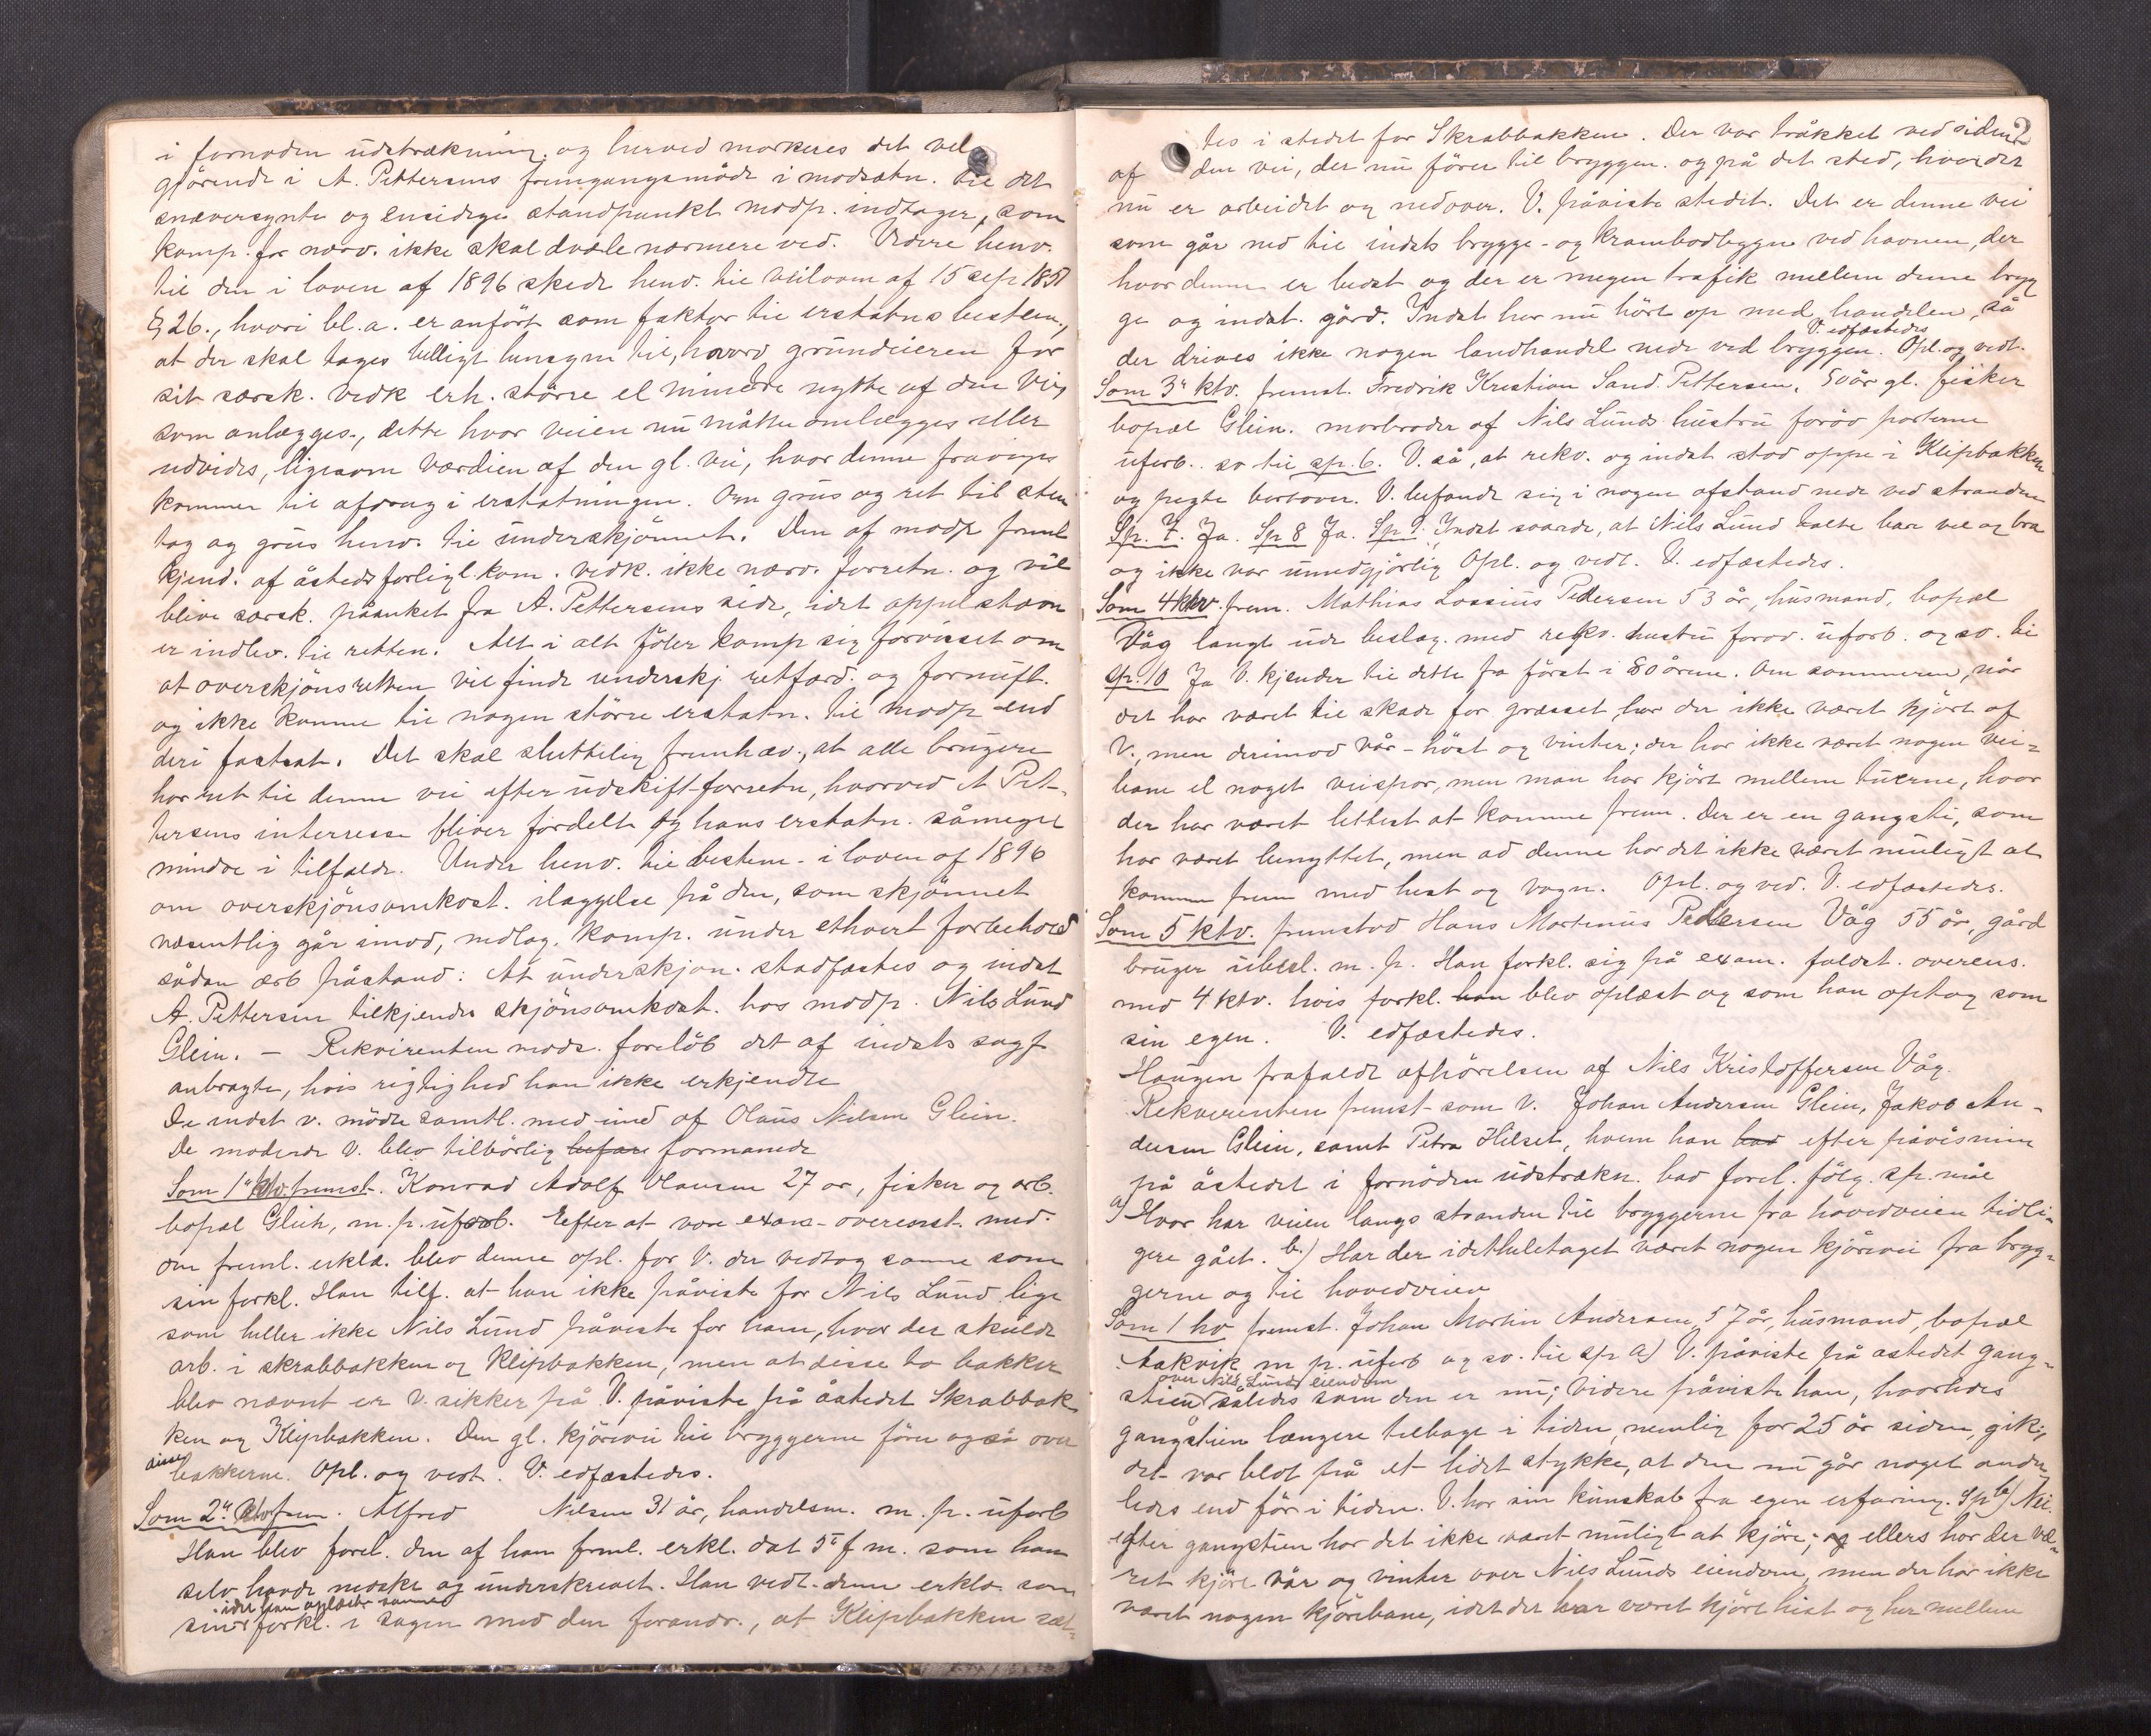 i fornøden udstrækning og herved markeres det vel
gjörende i A. Pettersens fremgangsmåde i modsætn. til det
snæversynte og ensidige standpunkt modp. indtager, som
komp. for nærv. ikke skal dvæle nærmere ved. Videre henv.
til den i loven af 1896 skede henv. til veiloven af 15 sep 1851
§ 26., hvori bl. a. er anfört som faktor til erstatns bestem.,
at der skal tages billigt hensyn til, hvad grundeieren for
sit særsk. vedk erh. større el mindre nytte af den vei,
som anlægges., dette hvor veien nu måtte omlægges eller
udvides, ligesom værdien af den gl. vei, hvor denne fraviges
kommer til afdrag i erstatningen. Om grus og ret til sten
tag og grus henv. til underskjönnet. Den af modp freml
kjend. af åstedsforligl.kom. vedk. ikke nærv. forretn. og vil
blive særsk. påanket fra A. Pettersens side, idet appelstævn
er indlev. til retten. Alt i alt föler komp sig forvisset om
at overskjönsretten vil finde underskj retfærd. og fornuft.
og ikke komme til nogen större erstatn. til modp end
deri fastsat. Det skal sluttelig fremhæv., at alle brugere
har ret til denne vei efter udskift-forretn, hvorved A Pet-
tersens interresse bliver fordelt og hans erstatn. såmeget
mindre i tilfælde. Under henv. til bestem. i loven af 1896
om overskjönsomkost. ilæggelse på den, som skjönnet
væsentlig går imod, nedlag. komp. under ethvert forbehold
sådan ærb påstand: At underskjön. stadfæstes og indst
A. Pettersen tilkjendes skjönsomkost. hos modp. Nils Lund
Glein. — Rekvirenten mods. foreløb det af indsts sagf
anbragte, hvis rigtighed han ikke erkjendte
De indst v. mödte samtl. med und af Olaus Nilsen Glein.
De mödende V. blev tilbörlig formanede
Som 1ste ktv. fremst. Konrad Adolf Olausen 27 år, fisker og arb.
bopæl Glein, m. p. uforb. Efter at være exam. overensst. med
den freml. erklæ. blev denne opl. for V. der vedtog samme som
sin forkl. Han tilf. at han ikke påviste for Nils Lund lige
som heller ikke Nils Lund påviste for ham, hvor der skulde
arb. i skrabbakken og Klipbakken, men at disse to bakker
blev nævnt er v. sikker på V. påviste på åstedet Skrabbak
ken og Klipbakken. Den gl. kjörevei til bryggerne förer også over
disse bakkerne. Opl. og vedt. V. edfæstedes.
Som 2den ktv frem. Alfred Nilsen 31 år, handelsm. m. p. uforb
Han blev forel. den af han freml. erkl. dat 5te f m. som han
selv havde medtat og underskrevet. Han vedt. denne erklæ som
idet han oplæstes samme
sin forkl. i sagen med den forandr., at Klipbakken sæt-
2
tes i stedet for Skrabbakken. Der var tråkket ved siden
af den vei, der nu förer til bryggen. og på det sted, hvor der
nu er arbeidet og nedover. V. påviste stedet. Det er denne vei
som går ned til indsts brygge- og krambodbygn ved havnen, der
hvor denne er bedst og der er megen trafik mellem denne bryg
ge og indst. gård. Indst har nu hört op med handelen, så
V. edfæstedes
der drives ikke nogen landhandel nede ved bryggen. Opl. og vedt.
Som 3de ktv. fremst. Fredrik Kristian Sand. Pettersen, 50 år gl. fisker
bopæl Glein. morbroder af Nils Lunds hustru foröv parterne
uforb. sv til sp. 6. V. så, at rekv. og indst stod oppe i Klipbakken
og pegte bortover. V. befandt sig i nogen afstand nede ved stranden
Sp. 7. Ja. Sp 8 Ja. Sp 9. Indst svarede, at Nils Lund talte bare vel og bra
og ikke var umedgjörlig Opl. og vedt. V. edfæstedes.
Som 4 ktv. frem. Mathias Lossius Pedersen 53 år, husmand, bopæl
Våg langt ude beslæg. med rekv. hustru foröv. uforb. og sv. til
sp. 10 Ja V. kjender til dette fra först i 80 årene. Om sommeren, når
det har været til skade for græsset, har der ikke været kjört af
V., men derimod vår- höst og vinter; der har ikke været nogen vei-
bane el noget veispor, men man har kjört mellem tuerne, hvor
der har været lettest at komme frem. Der er en gangsti, som
har været benyttet, men ad denne har det ikke været muligt at
komme frem med hest og vogn. Opl. og ved. V. edfæstedes.
Som 5 ktv. fremstod Hans Martinus Pedersen Våg 55 år, gård
bruger ubesl. m. p. Han forkl. sig på exam. fuldst. overens.
med 4. ktv. hvis forkl. han blev oplæst og som han optog som
sin egen. V. edfæstedes.
Haugen frafaldt afhörelsen af Nils Kristoffersen Våg.
Rekvirenten fremst. som V. Johan Andersen Glein, Jakob An-
dersen Glein, samt Petra Hilset, hvem han bad efter påvisning
på åstedet i fornöden udstrækn. bad forel. fölg. sp. mål
a) Hvor har veien langs stranden til bryggerne fra hovedveien tidli-
gere gået. b) Har der idethuletaget været nogen kjörevei fra bryg-
gerne og til hovedveien
Som 1 hv fremst. Johan Martin Andersen, 57 år, husmand, bopæl
Aakvik m p. uforb og sv. til sp a) V. påviste på åstedet gang-
over Nils Lunds eiendom
stien således som den er nu; Videre påviste han, hvorledes
gangstien længere tilbage i tiden, nemlig for 25 år siden, gik;
det var blot på et lidet stykke, at den nu går noget ander
ledes end för i tiden. V. har sin kunskab fra egen erfaring. Sp b) Nei.
efter gangstien har det ikke været muligt at kjöre; og ellers har der væ-
ret kjört vår og vinter over Nils Lunds eiendom, men der har ikke
været nogen kjörebane, idet der har været kjört hist og her mellem